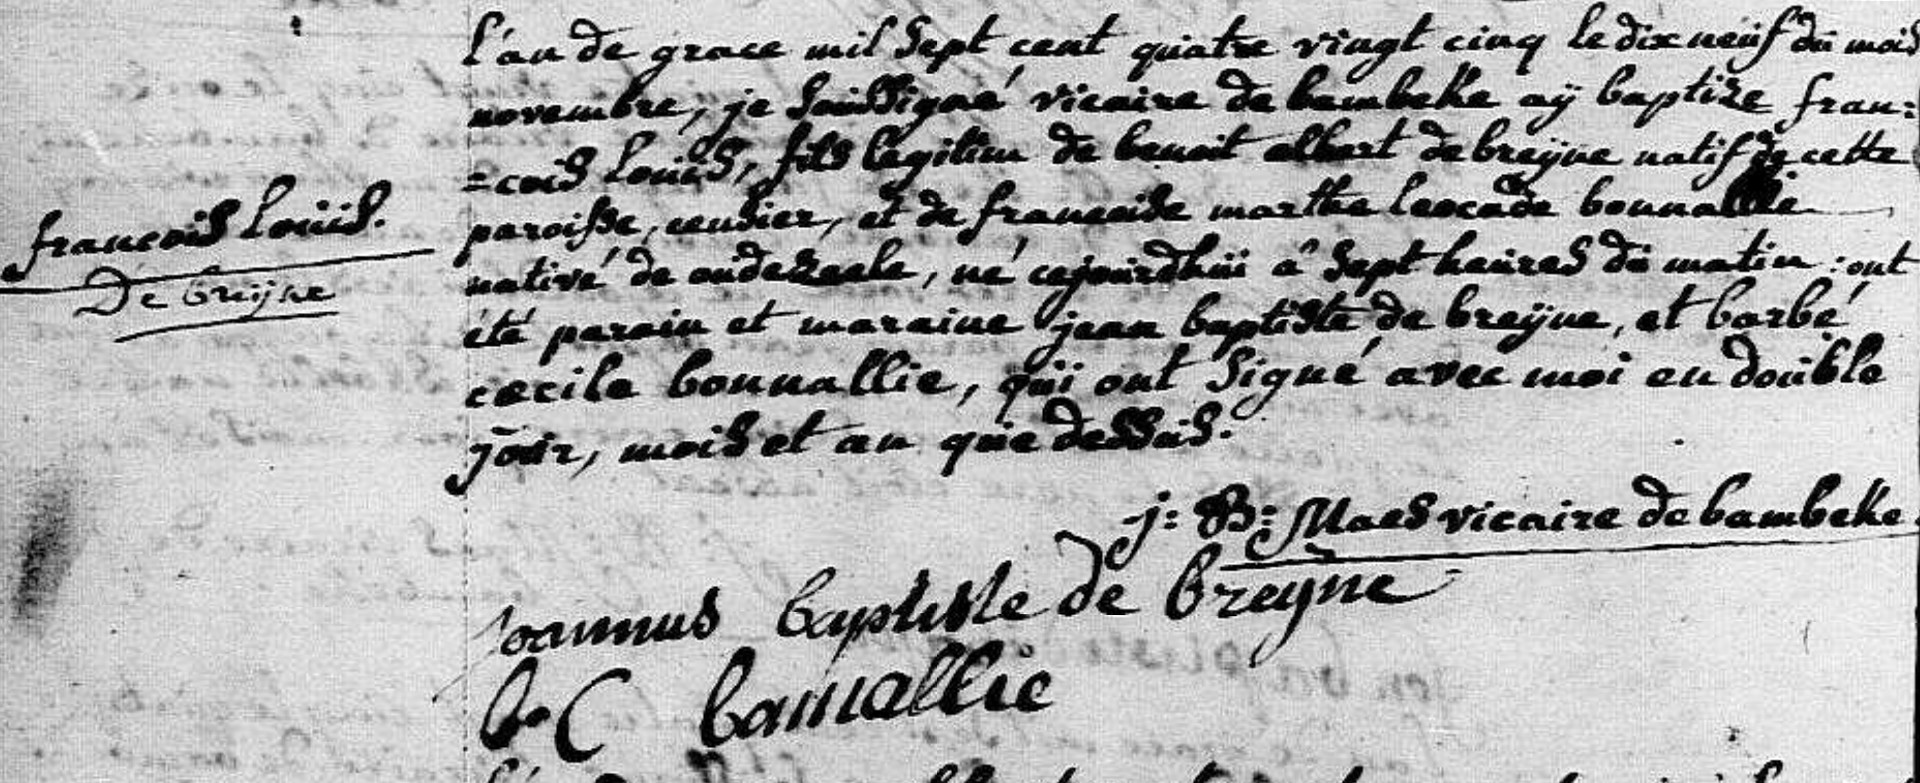 l'an de grace mil sept cent quatre vingt cinq le dix neuf du mois
novembre, je soussigné vicaire de bambeke aÿ baptize fran=
=cois Louis, fils legitim de benoit albert debreÿne natif de cette
paroisse, censier, et de francoise marthe leocade bonnallie
nativé de oudezeele, né cejourdhui à sept heures du matin : ont
été parain et maraine jean baptiste de breÿne, et barbé
cecile bonnallie, qui ont signé avec moi en double
jour, mois et an que dessus.
francois Louis.
De breÿne
j: B: Maes vicaire de bambeke
joannus baptiste de breÿne
b C bonnallie